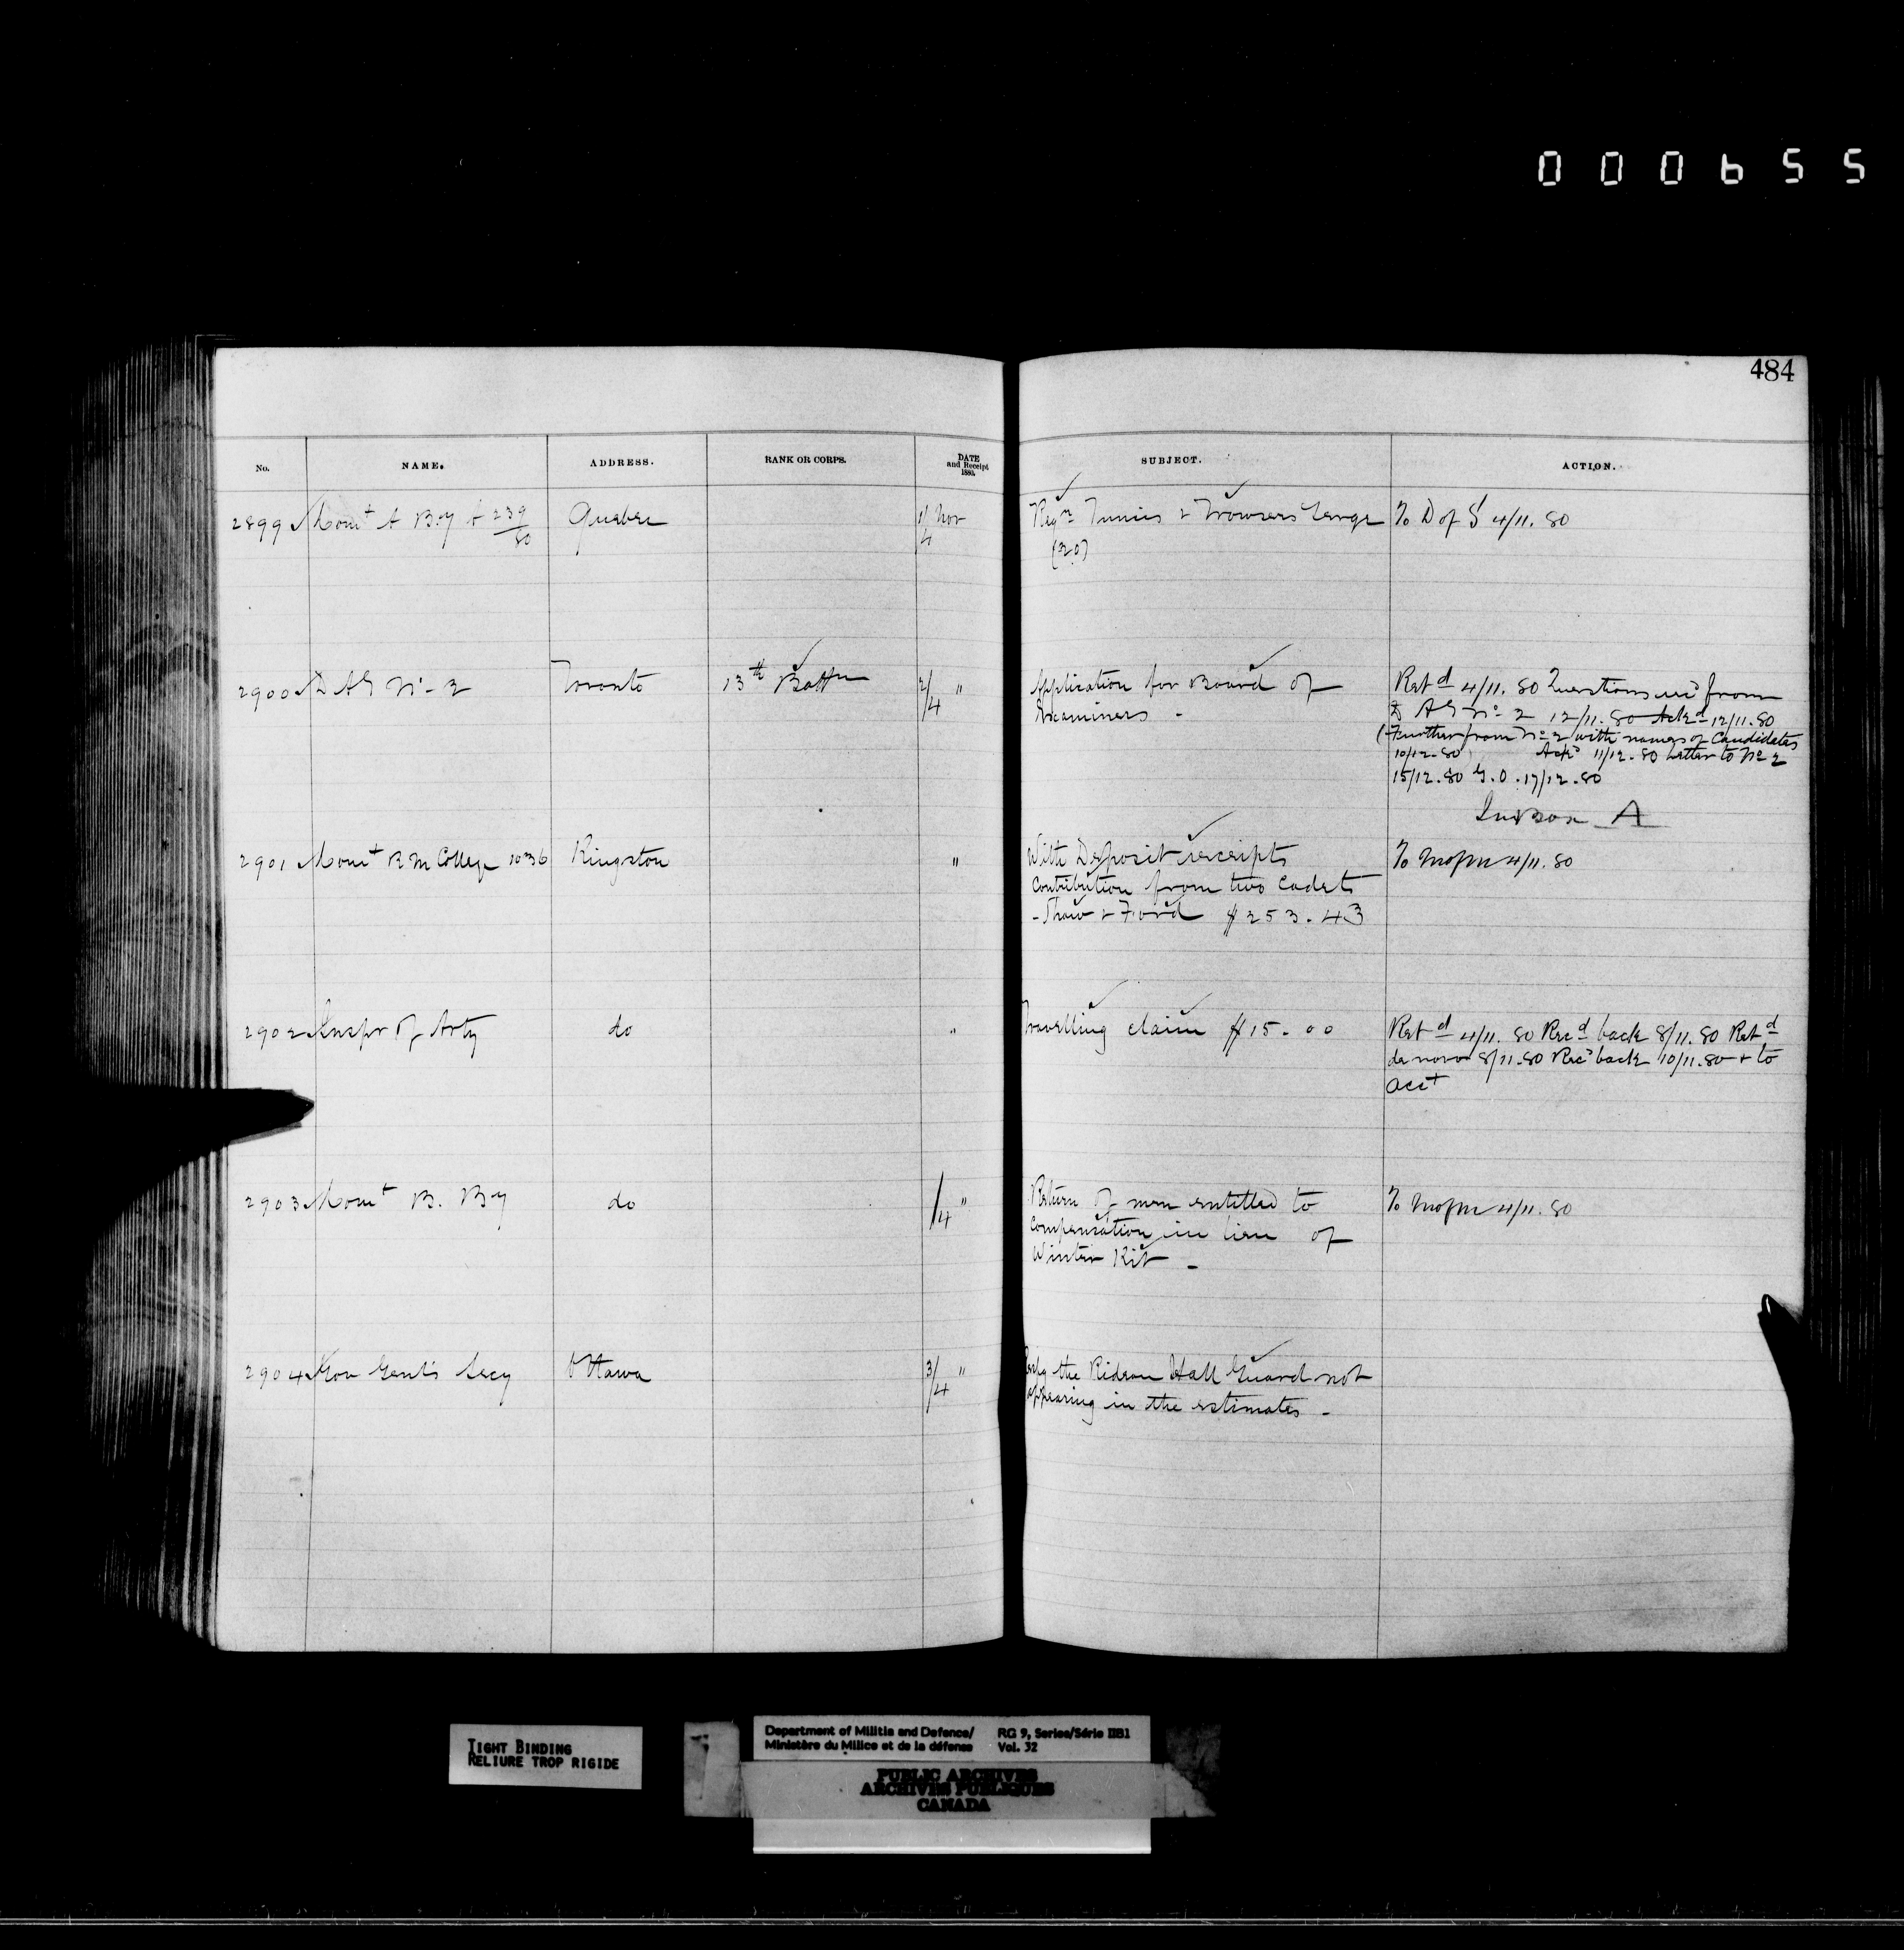 000655
484
No. NAME. ADDRESS. RANK OR CORPS. DATE and Receipt 1880. SUBJECT. ACTION.
2899 Comt A Bty 239/80 Quebec 1/4 Nov Reqn Tunics & Trowsers Serge To D of S 4/11.80
(20)
2900 D A G No 2 Toronto 13th Battn 2/4 " Application for Board of Retd 4/11.80 Questions recd from
Examiners - D A G No 2 12/11.80 Ackd 12/11.80
(Further from No 2 with names of Candidates
10/12.80 Ackd 11/12.80 Letter to No 2
15/12.80 G.O. 17/12.80
In Box A
2901 Comt R M College 1036 Kingston " With Deposit receipts To 4/11.80
Contribution from two Cadets
- Shaw & Ford $253.43
2902 Inspr of Arty do " Travelling claim $15.00 Retd 4/11.80 Recd back 8/11.80 Retd
de novo 8/11.80 Recd back 10/11.80 & to
Acct
2903 Comt B. Bty do 1/4 " Return of men entitled to To 4/11.80
compensation in lieu of
Winter Kit -
2904 Gov Genl's Secy Ottawa 3/4 " the Rideau Hall Guard not
appearing in the estimates -
TIGHT BINDING
RELIURE TROP RIGIDE
Department of Militia and Defence/ RG 9, Series/Série IIB1
Ministère du Milice et de la défense Vol. 32
PUBLIC ARCHIVES
ARCHIVES PUBLIQUES
CANADA